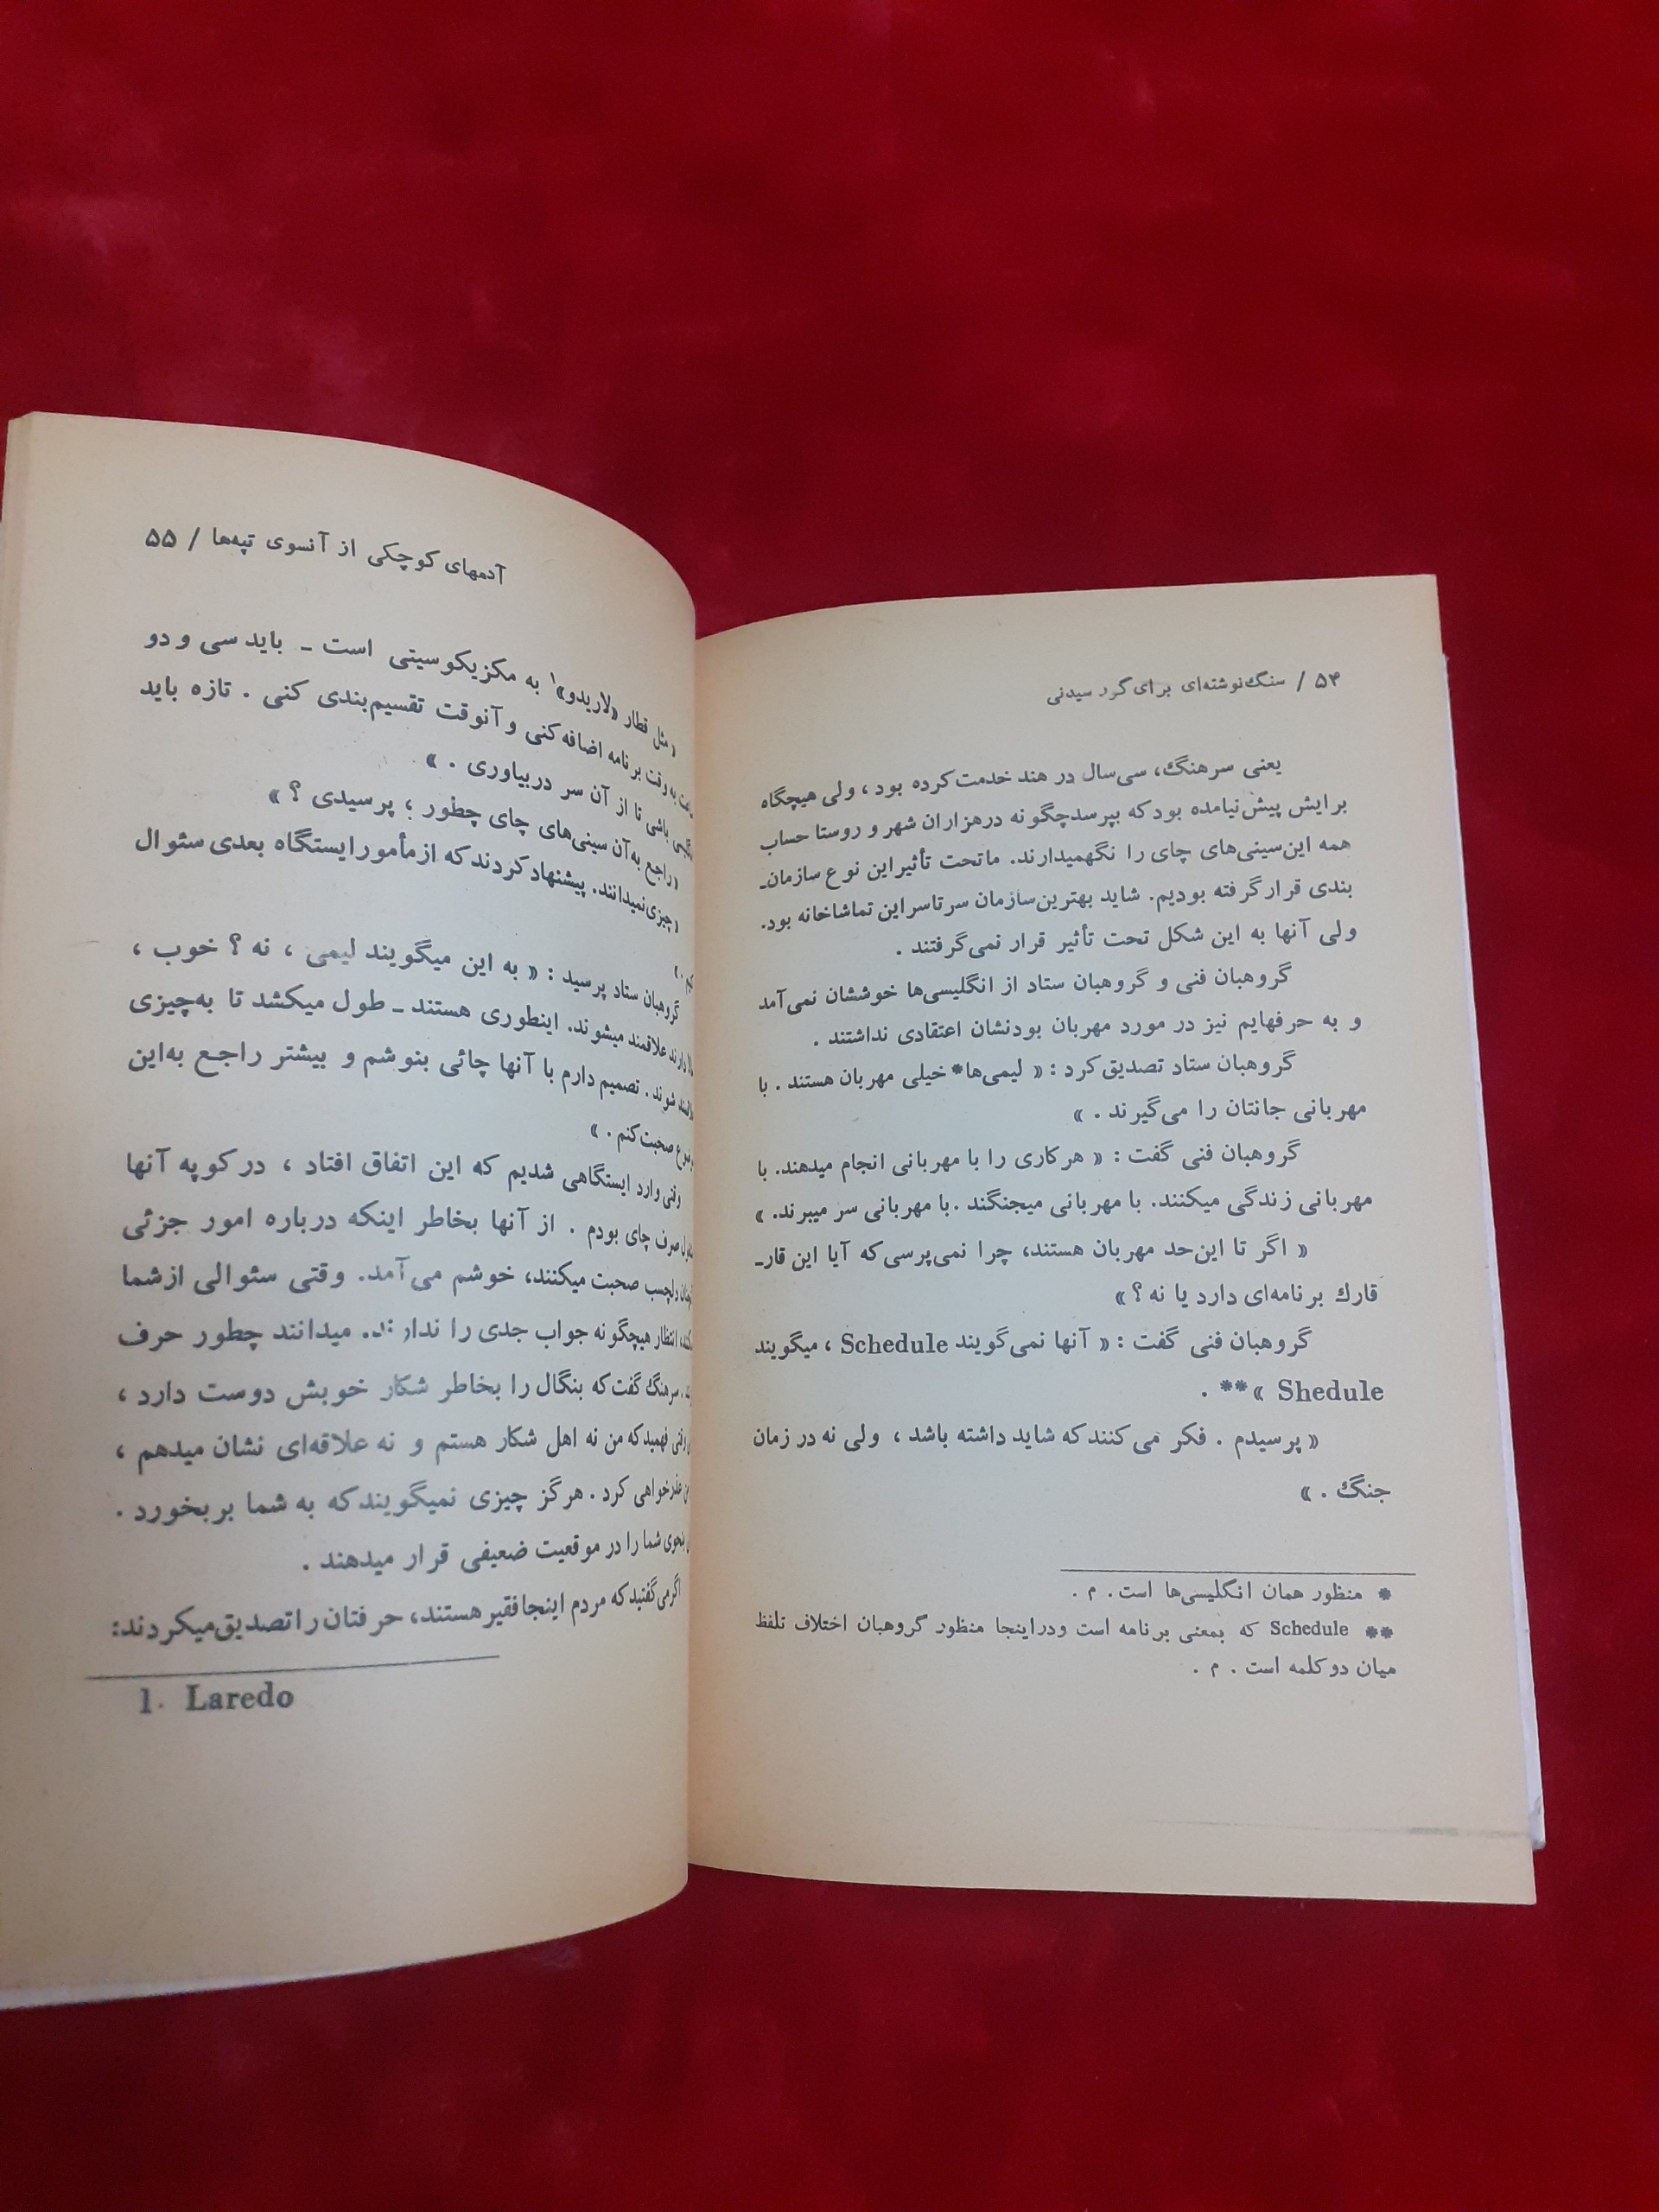 ۵۴ / سنگ‌نوشته‌ای برای گور سیدنی
یعنی سرهنگ، سی‌سال در هند خدمت کرده بود ، ولی هیچگاه
برایش پیش‌نیامده بود که بپرسد چگونه در هزاران شهر و روستا حساب
همه این‌سینی‌های چای را نگهمیدارند. ما تحت تأثیر این نوع سازمان‌ـ
بندی قرار گرفته بودیم. شاید بهترین‌سازمان سرتاسر این تماشاخانه بود.
ولی آنها به این شکل تحت تأثیر قرار نمی‌گرفتند .
گروهبان فنی و گروهبان ستاد از انگلیسی‌ها خوششان نمی‌آمد
و به حرفهایم نیز در مورد مهربان بودنشان اعتقادی نداشتند .
گروهبان ستاد تصدیق کرد : « لیمی‌ها* خیلی مهربان هستند . با
مهربانی جانتان را می‌گیرند . »
گروهبان فنی گفت : « هرکاری را با مهربانی انجام میدهند. با
مهربانی زندگی میکنند. با مهربانی میجنگند .با مهربانی سر میبرند. »
« اگر تا این‌حد مهربان هستند، چرا نمی‌پرسی‌که آیا این قار‌ـ
قارك برنامه‌ای دارد یا نه ؟ »
گروهبان فنی گفت : « آنها نمی‌گویند Schedule ، میگویند
Shedule »** .
« پرسیدم . فکر می‌کنند که شاید داشته باشد ، ولی نه در زمان
جنگ . »
* منظور همان انگلیسی‌ها است . م .
** Schedule که بمعنی برنامه است و دراینجا منظور گروهبان اختلاف تلفظ
میان دو کلمه است . م .
آدمهای کوچکی از آنسوی تپه‌ها / ۵۵
« مثل قطار «لاریدو»۱ به مکزیکوسیتی است ـ باید سی و دو
به وقت برنامه اضافه کنی و آنوقت تقسیم‌بندی کنی . تازه باید
باشی تا از آن سر دربیاوری . »
« راجع به‌آن سینی‌های چای چطور ؛ پرسیدی ؟ »
« چیزی نمیدانند. پیشنهاد کردند که از مأمور ایستگاه بعدی سئوال
گروهبان ستاد پرسید : « به این میگویند لیمی ، نه ؟ خوب ،
علاقمند میشوند. اینطوری هستند ـ طول میکشد تا به‌چیزی
شوند . تصمیم دارم با آنها چائی بنوشم و بیشتر راجع به‌این
صحبت کنم . »
وقتی وارد ایستگاهی شدیم که این اتفاق افتاد ، در کوپه آنها
صرف چای بودم . از آنها بخاطر اینکه درباره امور جزئی
دلچسب صحبت میکنند، خوشم می‌آمد. وقتی سئوالی از شما
انتظار هیچگونه جواب جدی را ندارند. میدانند چطور حرف
سرهنگ گفت که بنگال را بخاطر شکار خوبش دوست دارد ،
فهمید که من نه اهل شکار هستم و نه علاقه‌ای نشان میدهم ،
عذرخواهی کرد . هرگز چیزی نمیگویند که به شما بربخورد .
شما را در موقعیت ضعیفی قرار میدهند .
اگر می‌گفتید که مردم اینجا فقیر هستند، حرفتان را تصدیق میکردند:
1. Laredo